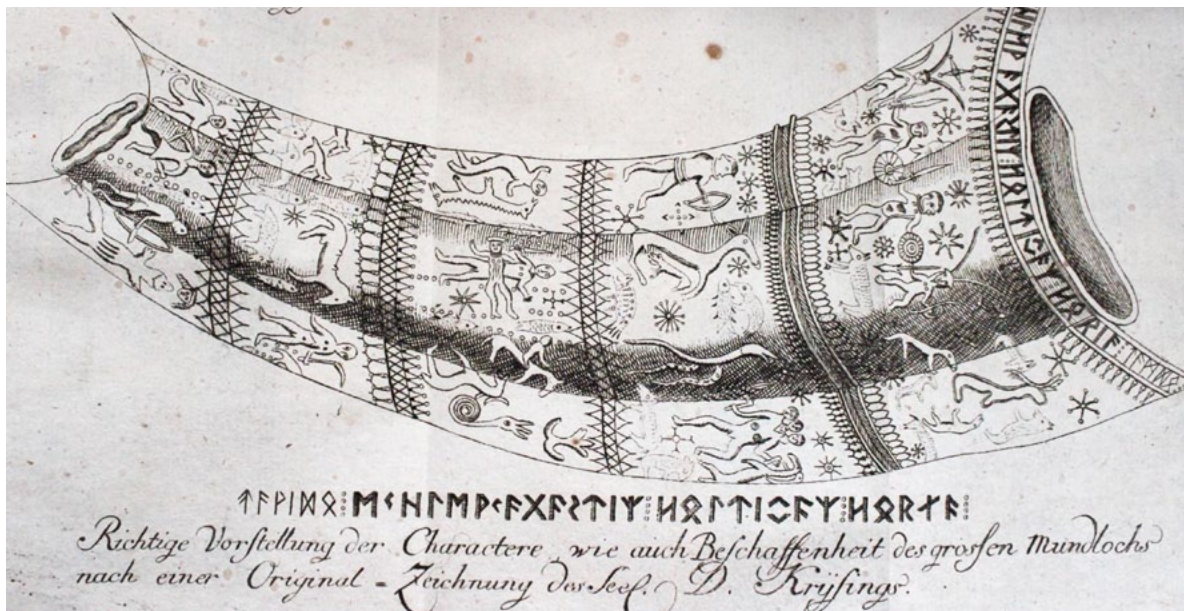 ᛏᚨᚹᛁᛞᛟ⁝ᛖᚲᚺᛚᛖᚹᚲᚨᚷᚨᛊᛏᛁᛉ⁝ᚺᛟᛚᛏᛁᛃᚨᛉ⁝ᚺᛟᚱᚾᚨ⁝
Richtige Vorstellung der Charactere, wie auch Beschaffenheit des grossen Mundlochs
nach einer Original-Zeichnung des Seel. D. Krÿsings.